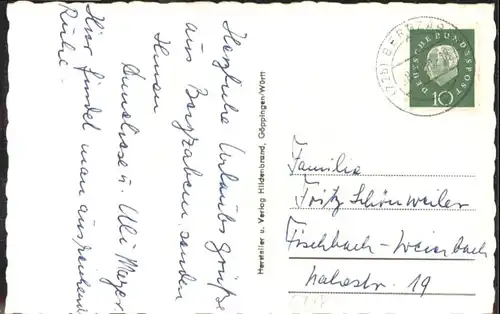 Herzliche Urlaubsgrüße
aus Bergzabern senden
Ihnen
Anneliese u. Ulli Mayer
Hier findet man ausreichend
Ruhe.
Hersteller u. Verlag Hildenbrand, Göppingen/Württ
DEUTSCHE BUNDESPOST
10
Familie
Fritz Schönweiler
Fischbach-Weierbach
Nahestr. 19